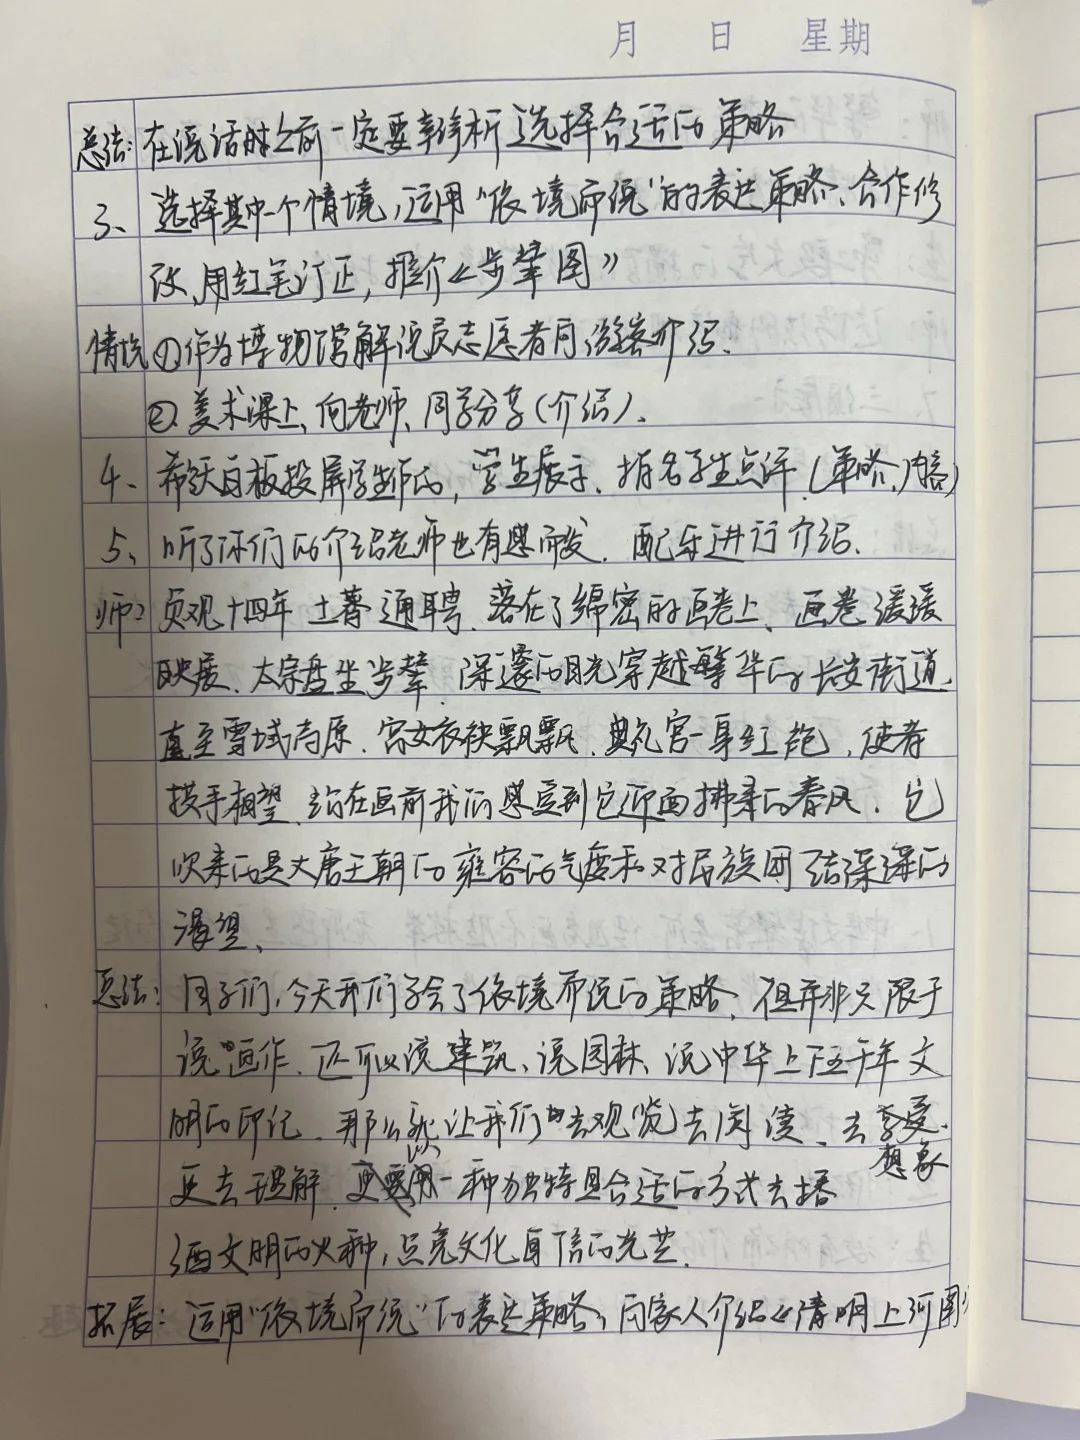 月 日 星期
总结: 在说话时之前一定要 分析 选择合适的策略
3、 选择其中一个情境,运用“依境而说”的表达策略、合作修
改、用红笔订正,推介《步辇图》
情境 ①作为博物馆解说员志愿者向游客介绍、
②、美术课上,向老师、同学分享(介绍)、
4、 希沃白板投屏 的,学生展示、指名学生点评、(策略、内容)
5、 听了你们的介绍老师也有感而发、配乐进行介绍、
师: 贞观十四年 土蕃通聘、落在了绵密的画卷上、画卷缓缓
展、太宗盘坐步辇、深邃的目光穿越繁华的长安街道、
直至雪域高原、宫女衣袂飘飘、典礼官一身红袍,使者
拱手相望、站在画前我们感受到它迎面拂来的春风、它
吹来的是大唐王朝的雍容的气度和对民族团结深深的
渴望、
总结: 同学们,今天我们学会了依境而说的策略,但并非只限于
说画作、还可以说建筑、说园林、说中华上下五千年文
明的印记、那么就让我们去观览去阅读、去享受、
想象
更去理解、以一种独特且合适的方式去播
洒文明的火种,点亮文化自信的光芒、
拓展: 运用“依境而说”的表达策略,向家人介绍《清明上河图》